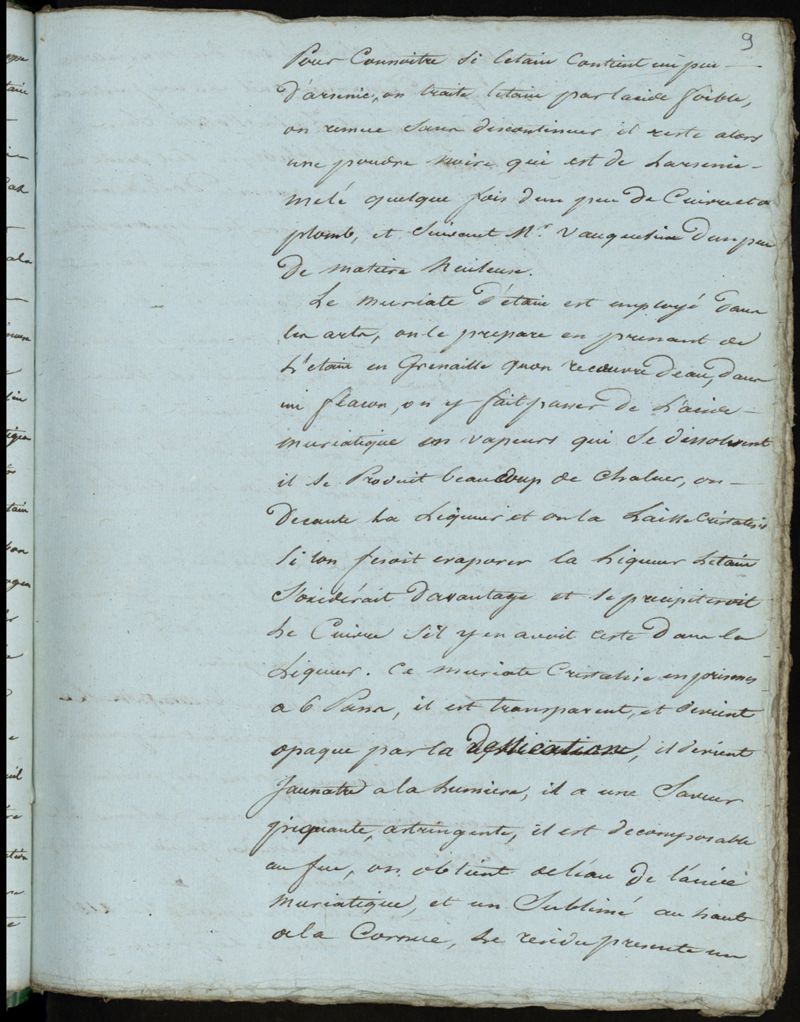 9
Pour Connoitre si letain Contient un peu
D'arsenic, on traite letain par lacide foible,
on remue sans discontinuer il reste alors
une poudre noire qui est de Larsenic
melé quelque fois d'un peu de Cuivre et
plomb, et suivant Mr. Vauquelin d'un peu
De matiere huileuse.
Le muriate D'étain est employé Dans
les arts, on le prepare en prenant de
L'etain en Grenaille quon recouvre Deau, dans
un flacon, on y fait passer de L'acide
muriatique en vapeurs qui se dissolvent
il se Produit beaucoup de chaleur, on
Decante La Liqueur et on la Laisse Cristaliser
Si lon fesoit evaporer la Liqueur Letain
s'oxiderait Davantage et se precipiteroit
Le Cuivre s'il y en avoit reste Dans la
Liqueur. Ce muriate Cristalise en prismes
a 6 Pans, il est transparent, et devient
opaque par la dessication, il devient
Jaunatre a la Lumiere, il a une Saveur
piquante, astringente, il est decomposable
au feu, on obtient de l'eau De l'acide
muriatique, et un Sublimé au haut
de la Cornue, Le residu presente un